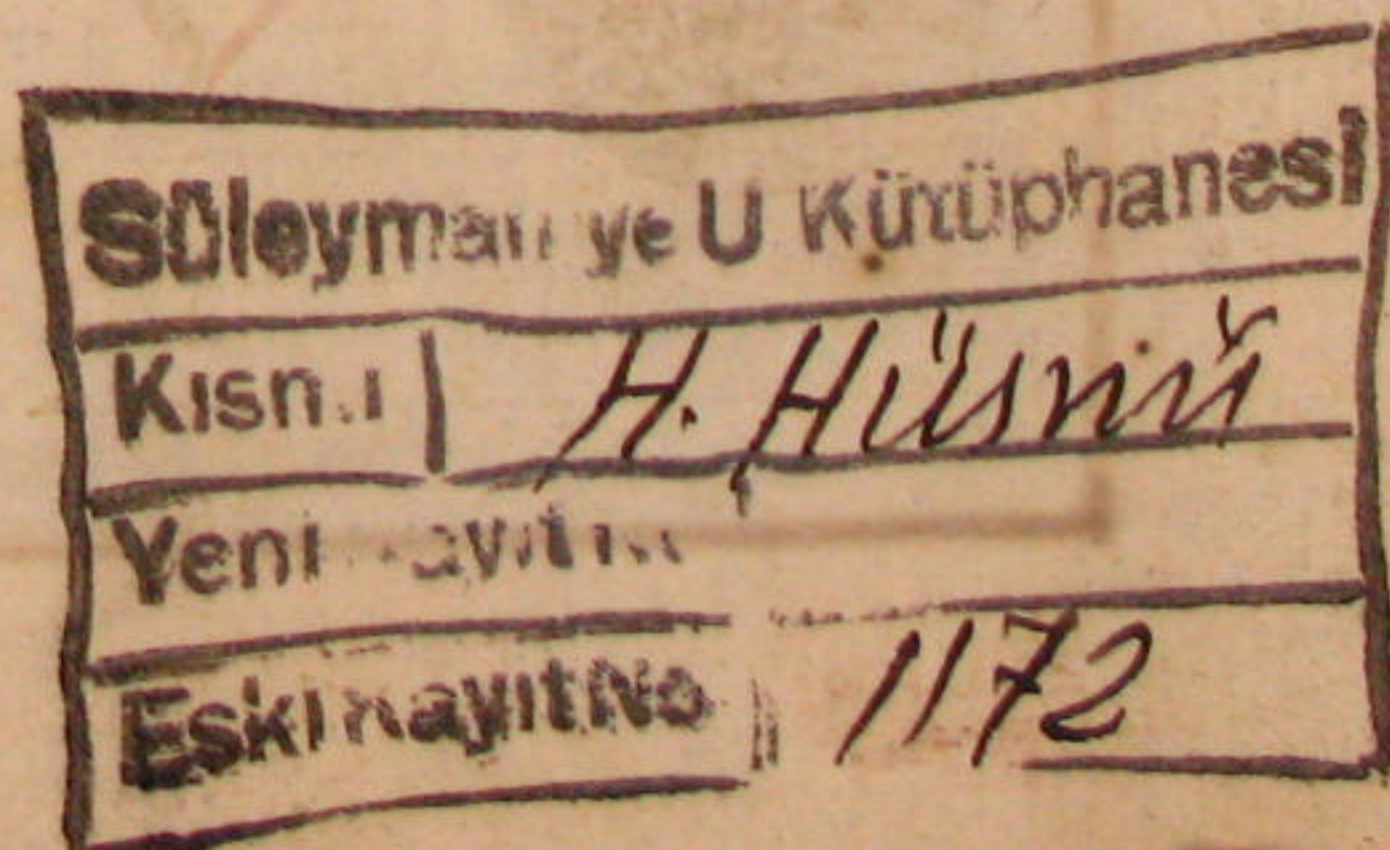 Süleymaniye U Kütüphanesi
Kısmı H. Hüsnü
Yeni Kayıt No
Eski Kayıt No 1172